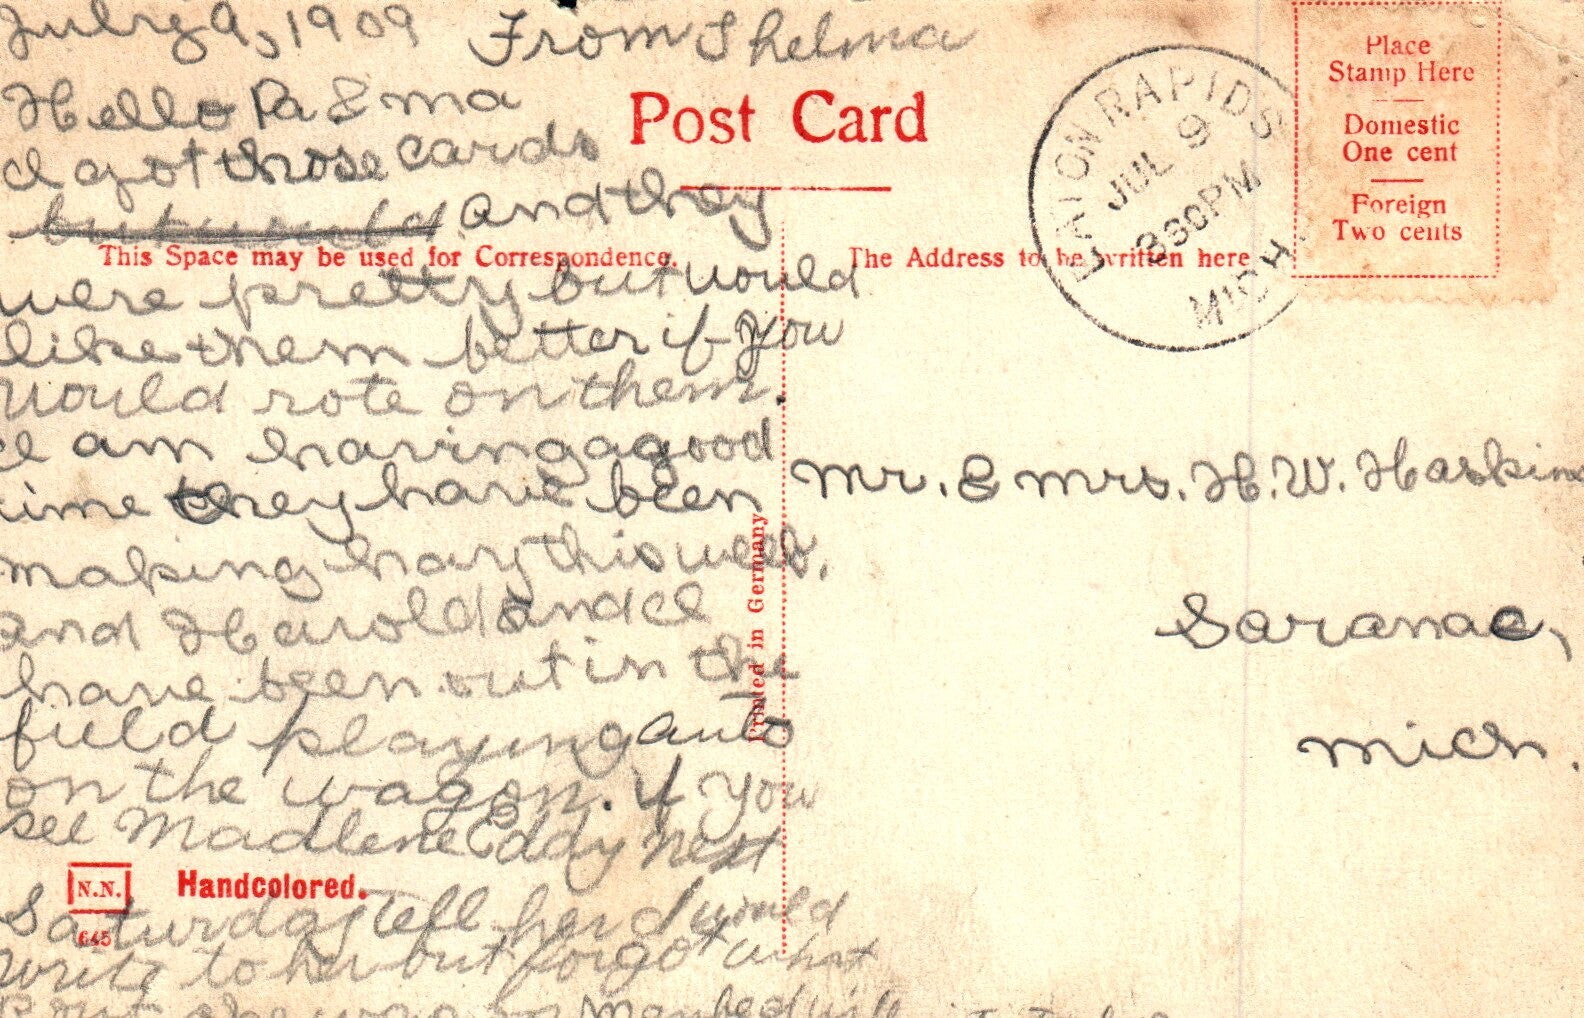 July 9, 1909 From Thelma
Hello Pa & ma
I got those cards
but would and they
were pretty but would
like them better if you
would rote on them.
I am having a good
time they have been
making hay this week.
and Harold and I
have been out in the
field playing auto
on the wagon. if you
see Madlene Eddy next
Saturday tell her I would
write to her but forgot what
she was on
Post Card
This Space may be used for Correspondence.
The Address to be written here
EATON RAPIDS
JUL 9
330PM
MICH.
Place
Stamp Here
Domestic
One cent
Foreign
Two cents
Mr. & Mrs. H. W. Haskins
Saranac,
Mich.
Printed in Germany
N.N.
Handcolored.
645